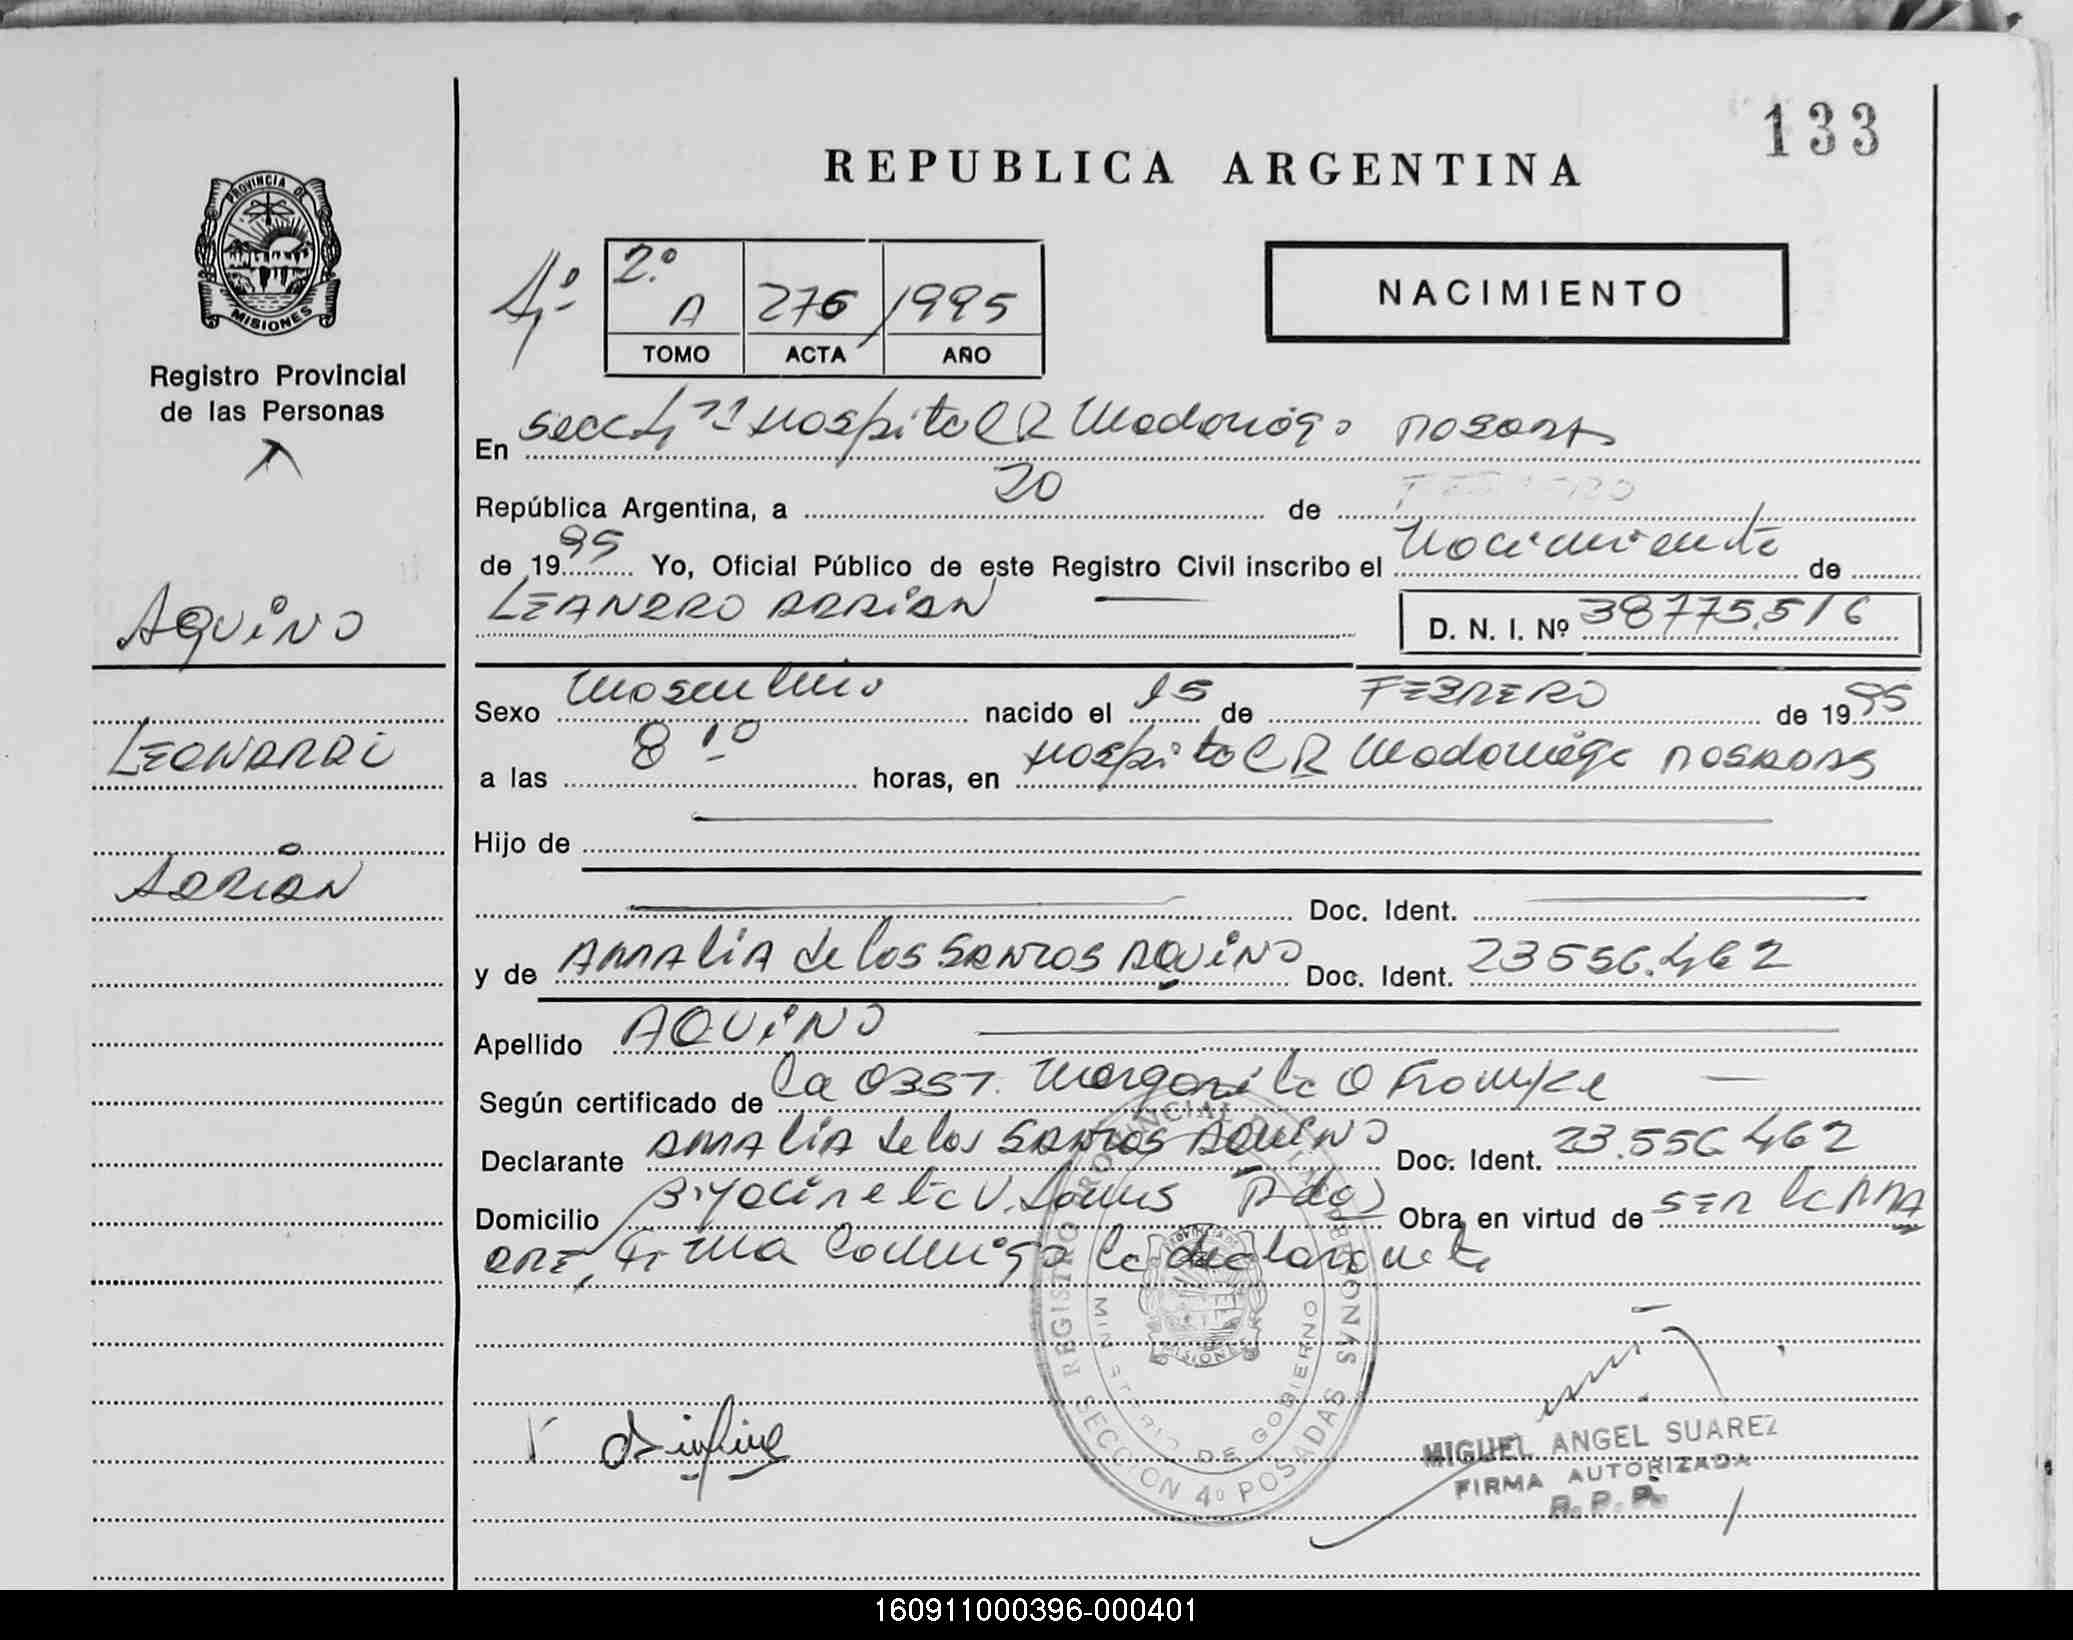 133
REPUBLICA ARGENTINA
PROVINCIA DE
MISIONES
Registro Provincial
de las Personas
4º
2º A 276 1995
TOMO ACTA AÑO
NACIMIENTO
En Secc 4ª Hospital R Madariaga Posadas
República Argentina, a 20 de FEBRERO
de 1995 Yo, Oficial Público de este Registro Civil inscribo el Nacimiento de
LEANDRO ADRIAN
D. N. I. Nº 38775.516
AQUINO
LEONARDI
ADRIAN
Sexo Masculino nacido el 15 de FEBRERO de 1995
a las 8 10 horas, en Hospital R Madariaga POSADAS
Hijo de
Doc. Ident.
y de AMALIA de los SANTOS AQUINO Doc. Ident. 23556.462
Apellido AQUINO
Según certificado de la OBST. Margarita O
Declarante AMALIA de los SANTOS AQUINO Doc. Ident. 23.556 462
Domicilio Bº Yacireta Pdas Obra en virtud de SER la MA
DRE, Firma conmigo la declarante
REGISTRO PROVINCIAL DE LAS PERSONAS
MINISTERIO DE GOBIERNO
PROVINCIA DE
MISIONES
SECCION 4º POSADAS
MIGUEL ANGEL SUAREZ
FIRMA AUTORIZADA
R. P. P.
160911000396-000401